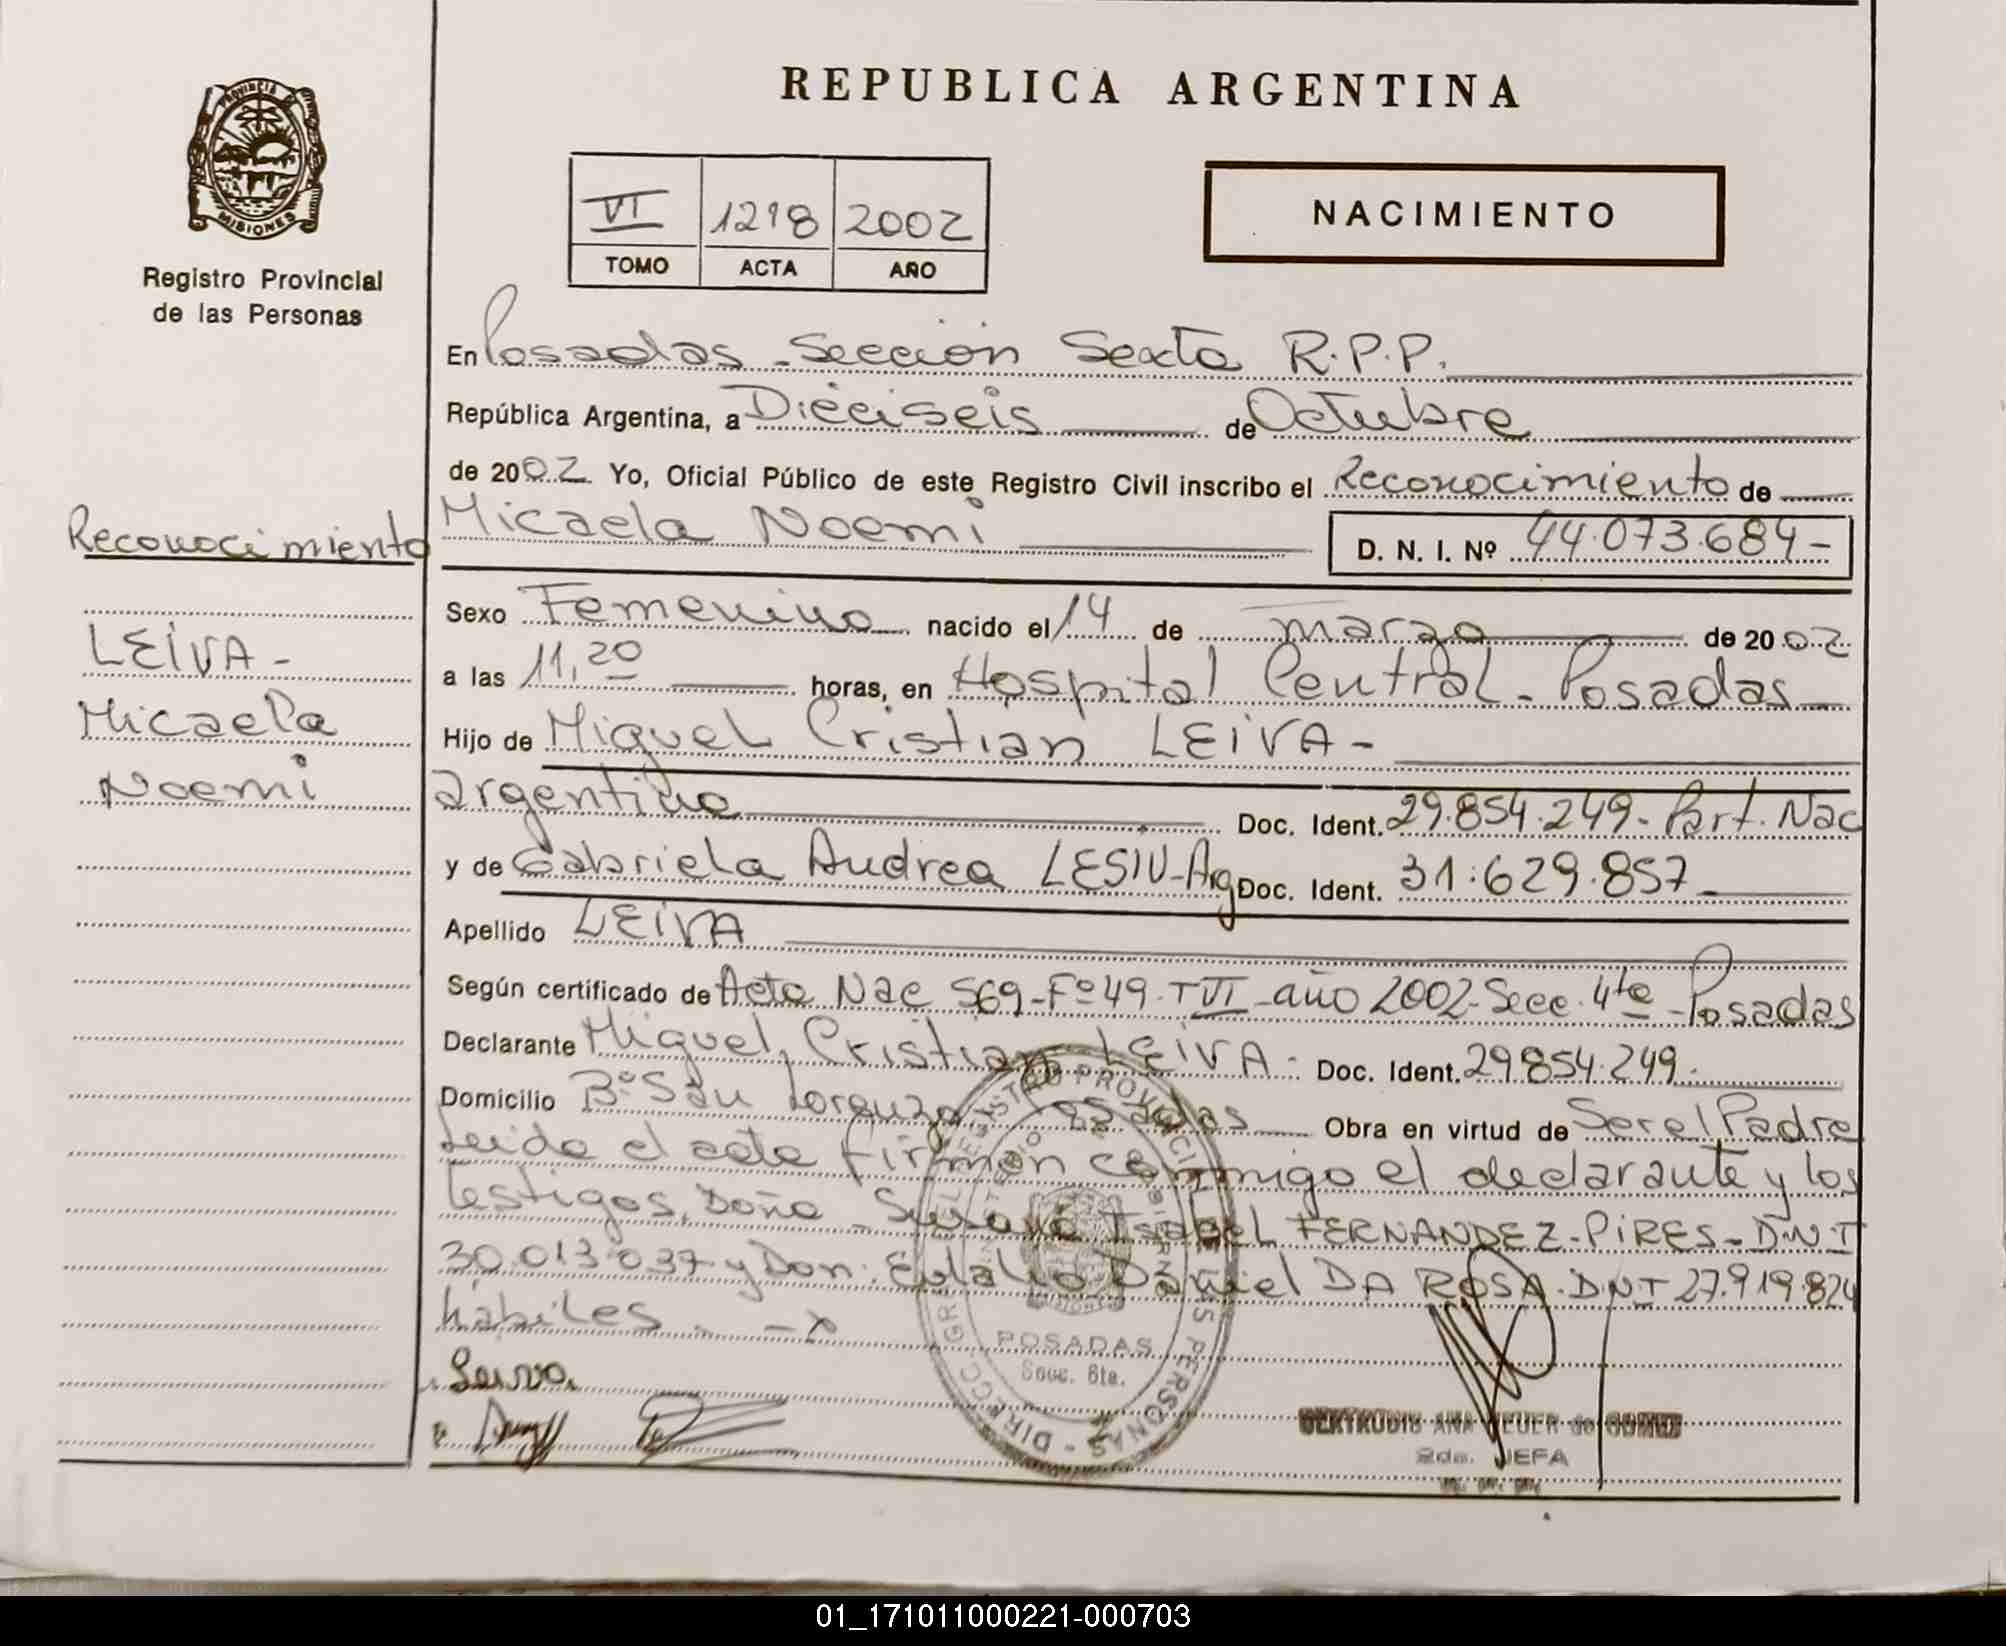 REPUBLICA ARGENTINA
PROVINCIA DE
MISIONES
Registro Provincial
de las Personas
VI 1218 2002
TOMO ACTA AÑO
NACIMIENTO
En Posadas - Sección Sexta R.P.P.
República Argentina, a Dieciseis de Octubre
de 2002 Yo, Oficial Público de este Registro Civil inscribo el Reconocimiento de
Micaela Noemi D. N. I. Nº 44.073.684-
Sexo Femenino nacido el 14 de marzo de 2002
a las 11,20 horas, en Hospital Central - Posadas
Hijo de Miguel Cristian LEIVA -
argentino Doc. Ident. 29.854.249. Part. Nac
y de Gabriela Andrea LESIU - Arg Doc. Ident. 31.629.857
Apellido LEIVA
Según certificado de Acta Nac 569 - Fº 49 - T VI - año 2002 - Secc. 4ta - Posadas
Declarante Miguel Cristian LEIVA - Doc. Ident. 29.854.249.
Domicilio Bº San Lorenzo Posadas Obra en virtud de Ser el Padre
Leida el acta firman conmigo el declarante y los
testigos, Doña Susana Isabel FERNANDEZ - PIRES - D.N.I
30.013.037 y Don: Eulalio Daniel DA ROSA. D.N.I 27.919.824
hábiles. - x
Reconocimiento
LEIVA -
Micaela
Noemi
POSADAS
Secc. 6ta.
Leiva
GERTRUDIS ANA de GOMEZ
2da. JEFA
01_171011000221-000703